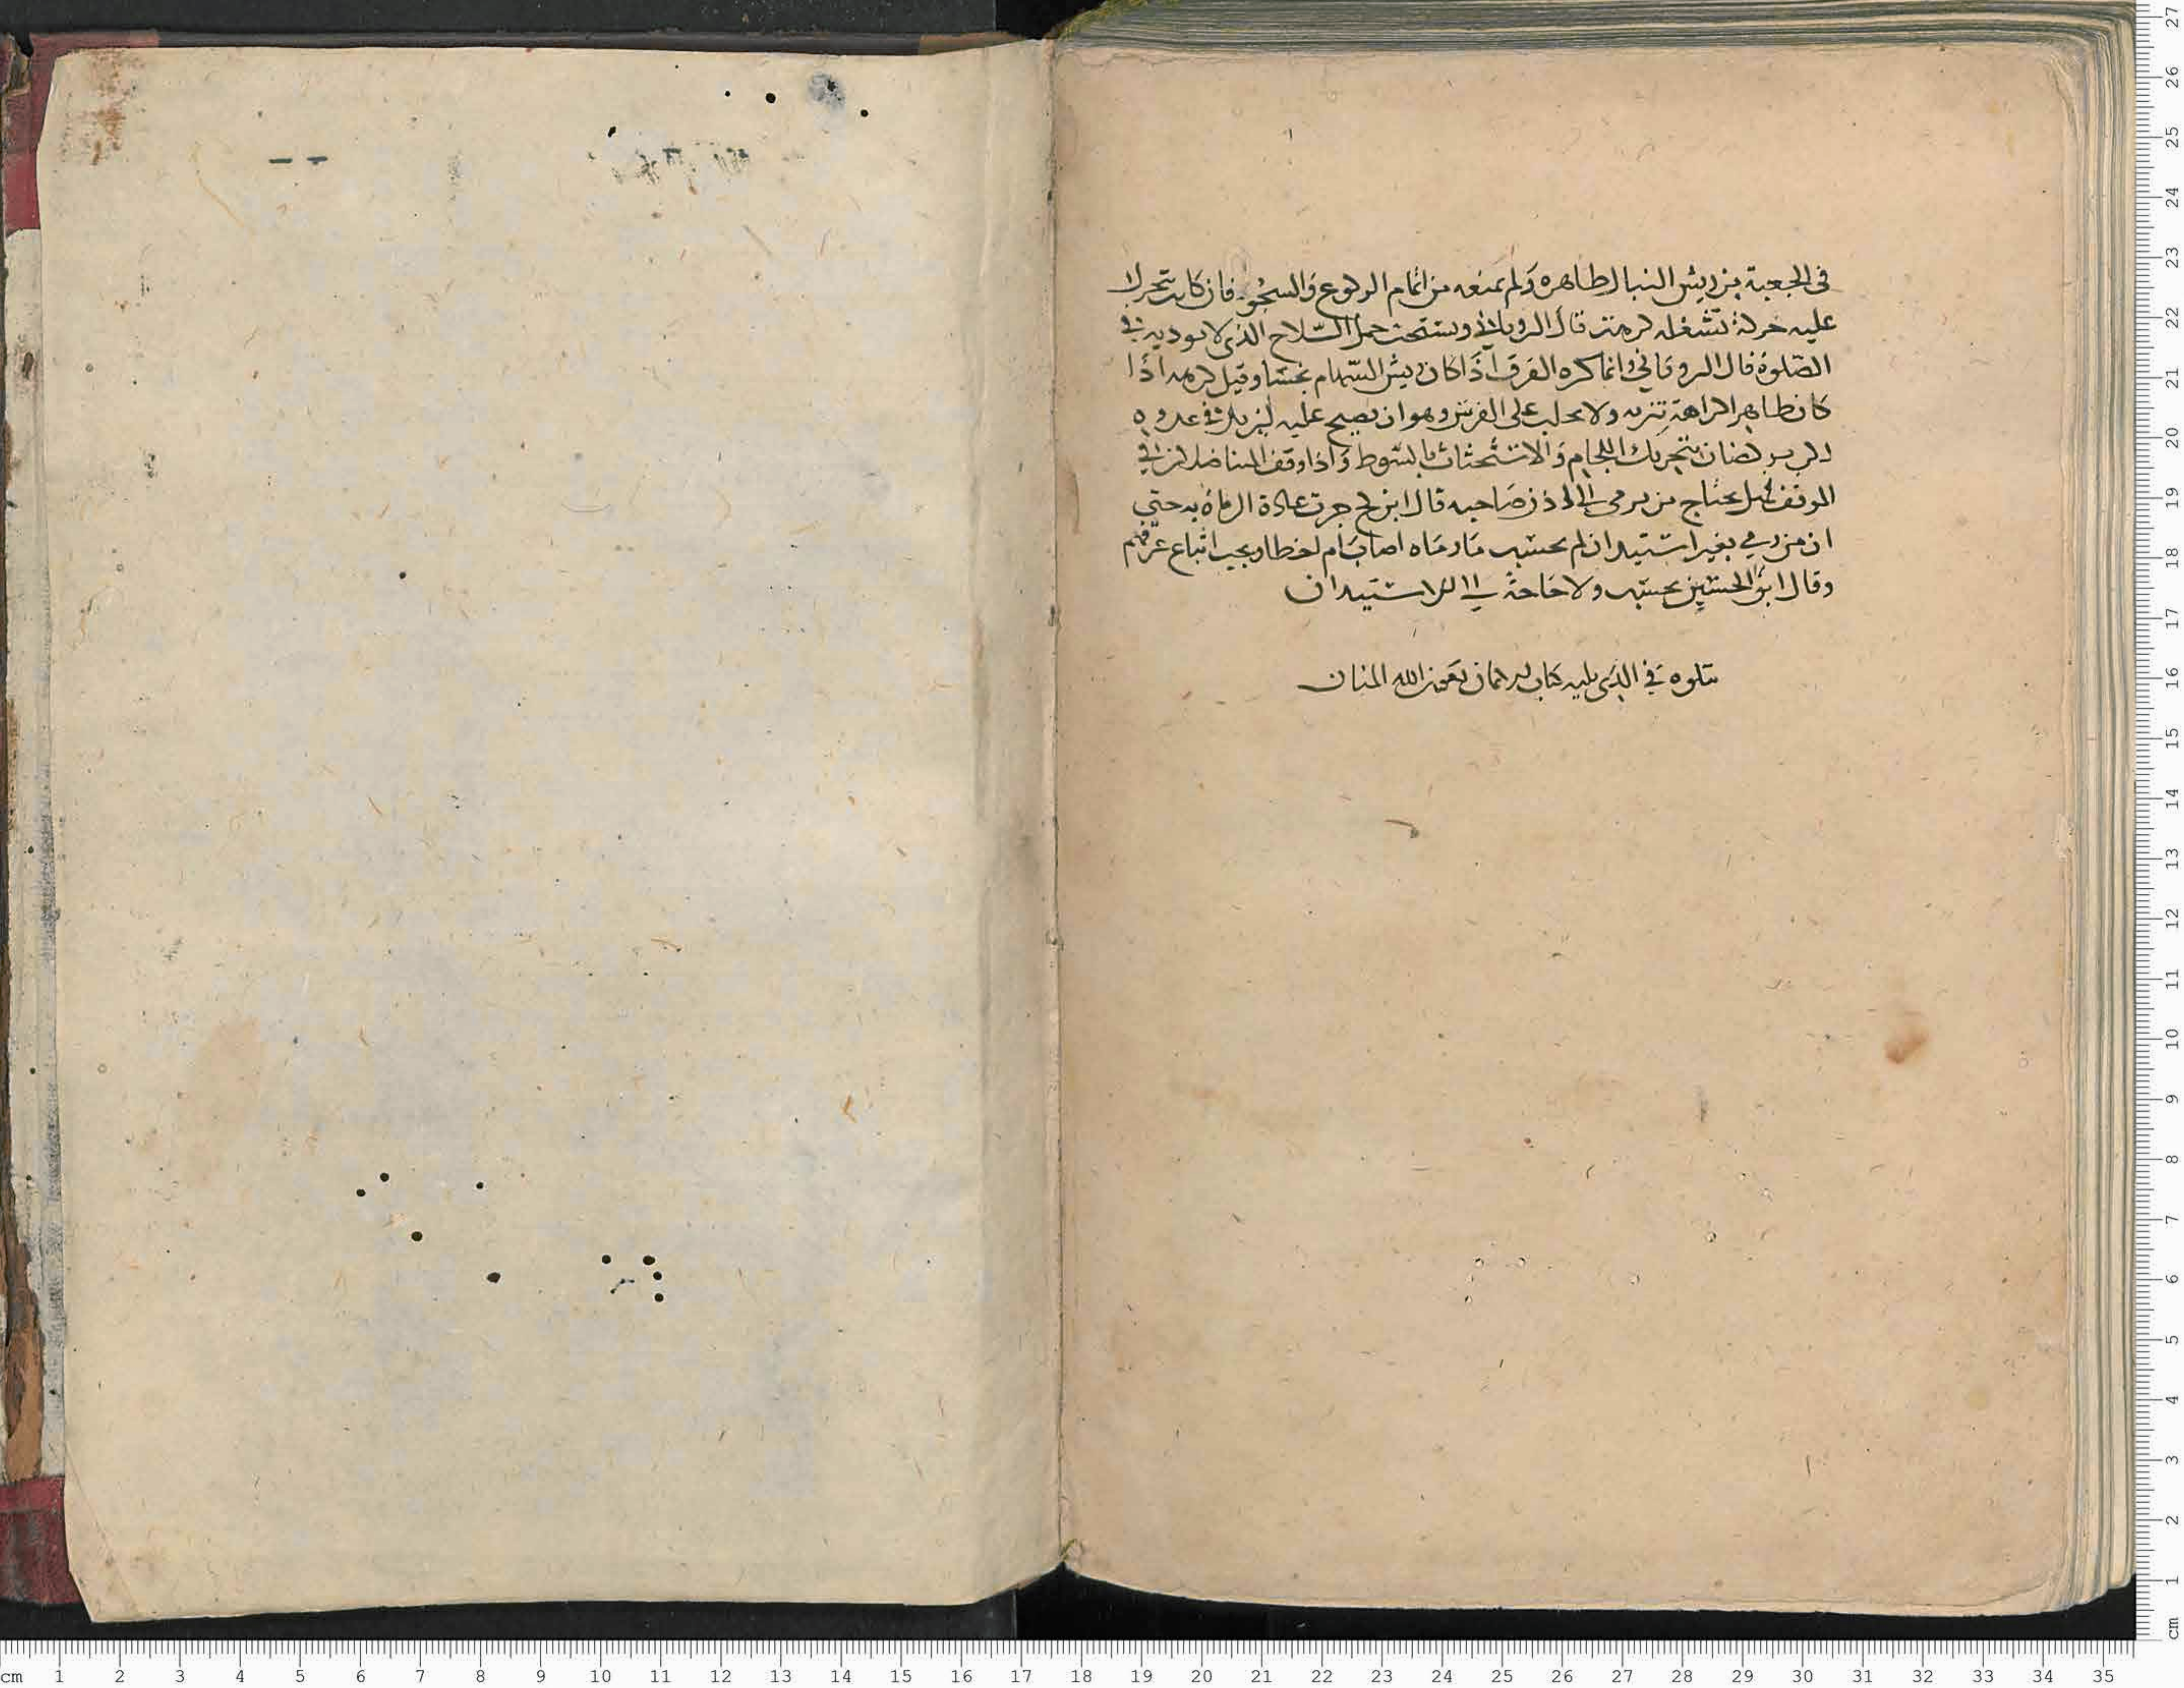 في الجعبة من ريش النبال طاهره ولم يمنعه من اتمام الركوع والسجود فان كان يتحرك
عليه حركة تشغله كرهت قال الروياني ويستحب حمل السلاح الذي لا يوديه في
الصلوة قال الروياني وانما كره القرن اذا كان ريش السهام نجسا وقيل كرهه اذا
كان طاهرا كراهة تنزيه ولا يجلب على الفرس وهو ان يصيح عليه ليزيد في عدوه
بتحريك اللجام والاستحثاث بالسوط واذا وقف المناضلان في
الموقف هل يحتاج من يرمي الى اذن صاحبه قال ابن كج جرت عادة الرماة به حتى
ان من رمي بغير استيذان لم يحسب ما رماه اصاب ام اخطا ويجب اتباع عرفهم
وقال ابو الحسين يحسب ولا حاجة الى الاستيذان
يتلوه في الذي يليه كتاب الايمان بعون الله المنان